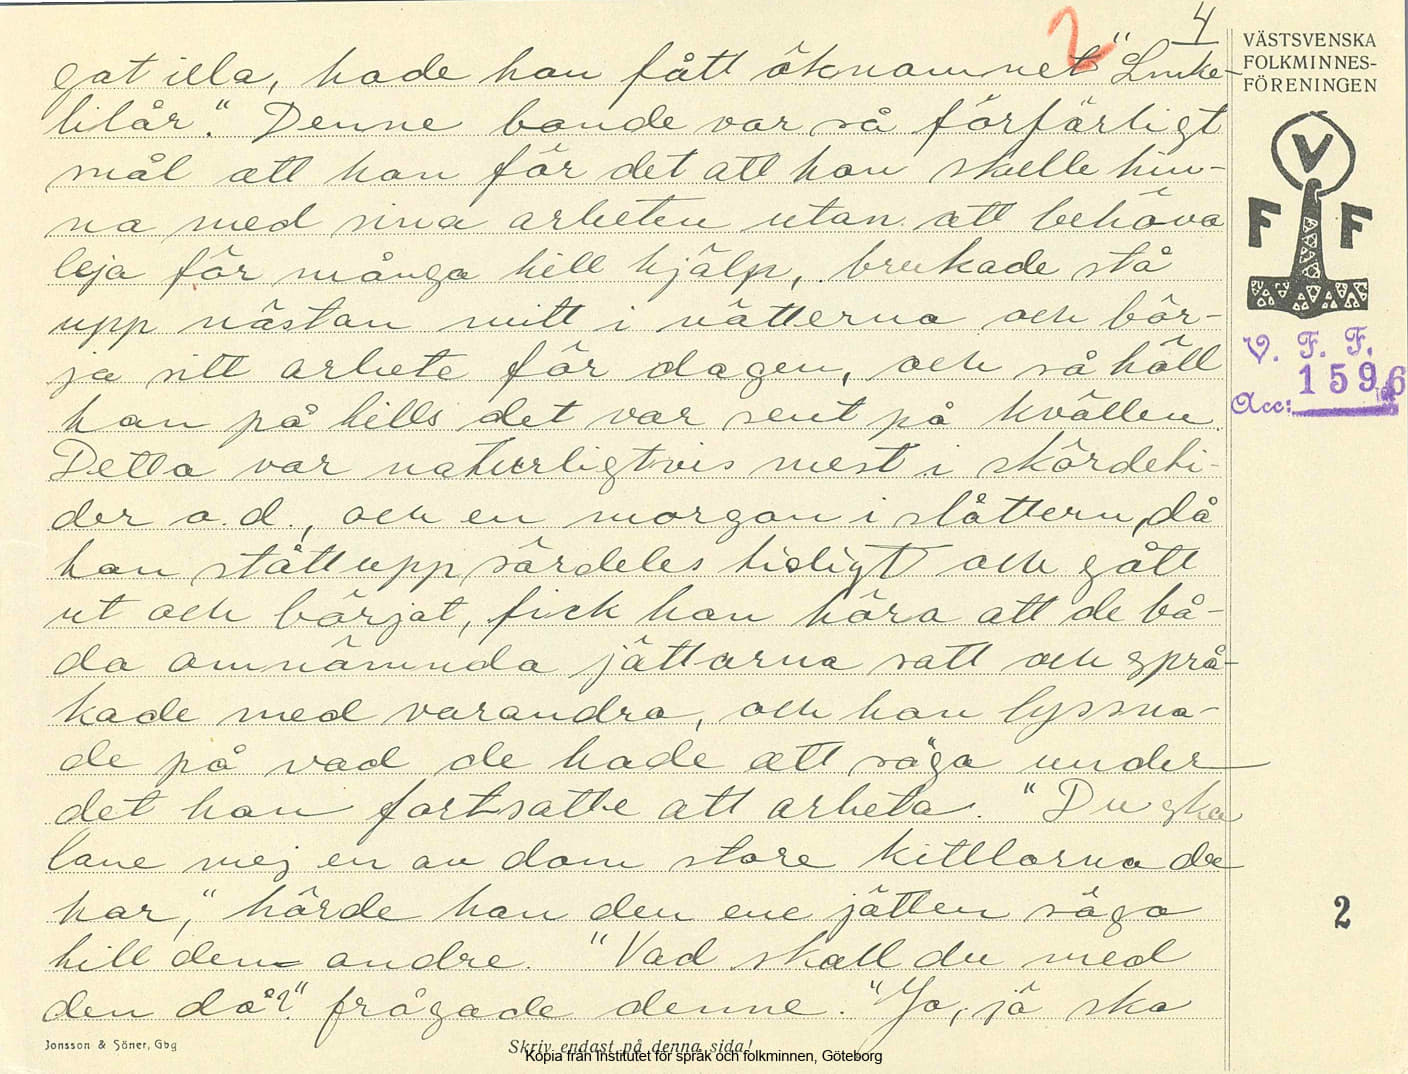 4
2
VÄSTSVENSKA
FOLKMINNES-
FÖRENINGEN
gat illa, hade han fått öknamnet "Linke-
lilår." Denne bonde var så förfärligt
snål att han för det att han skulle hin-
na med sina arbeten utan att behöva
leja för många till hjälp, brukade stå
upp nästan mitt i nätterna och bör-
ja sitt arbete för dagen, och så höll
han på tills det var sent på kvällen.
Detta var naturligtvis mest i skördeti-
der o.d., och en morgon i slåttern, då
han stått upp särdeles tidigt och gått
ut och börjat, fick han höra att de bå-
da omnämnda jättarna satt och språ-
kade med varandra, och han lyssna-
de på vad de hade att säga under
det han fortsatte att arbeta. "Du ska
lane mej en av dom store kittlarna du
har," hörde han den ene jätten säga
till den andre. "Vad skall du med
den då?" frågade denne. "Jo, jä ska
V
F F
V. F. F.
1596
Acc:
2
Jonsson & Söner, Gbg
Skriv endast på denna sida!
Kopia från Institutet för språk och folkminnen, Göteborg